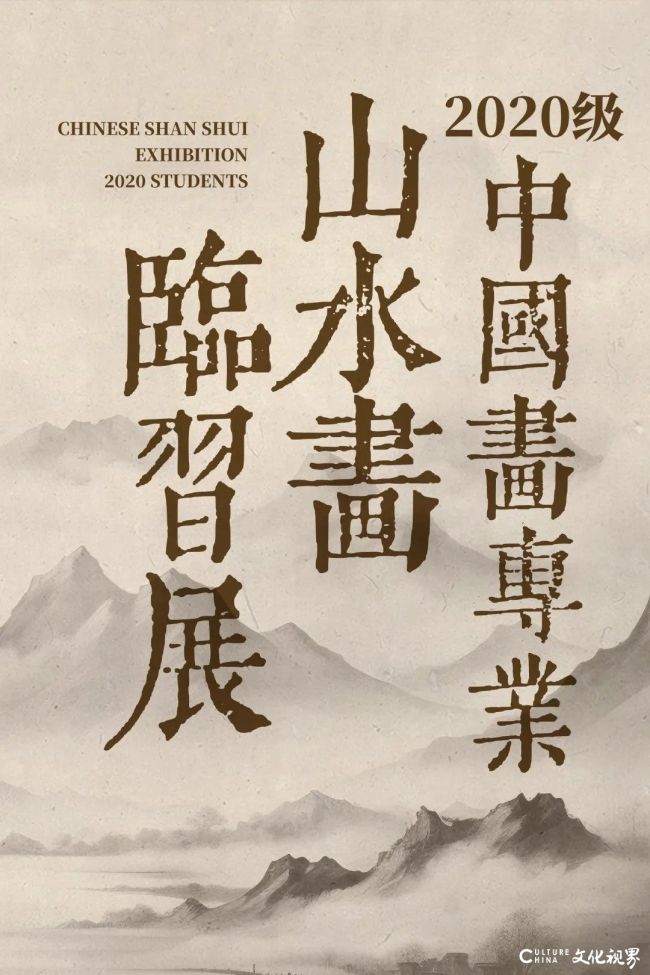 2020级
中國畫專業
山水畫
臨習展
CHINESE SHAN SHUI
EXHIBITION
2020 STUDENTS
CULTURE
CHINA
文化视界